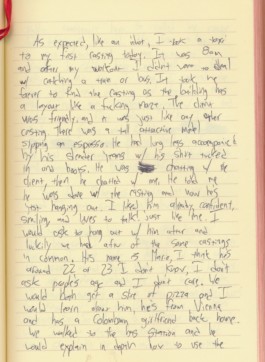 As expected, like an idiot, I took a taxi
to my first casting today. It was 8am
and after my workout I didn't want to deal
w/ catching a train or bus. It took me
forever to find the casting as the building has
a layout like a fucking maze. The client
was friendly and it was just like any other
casting. There was a tall, attractive model
sipping an espresso. He had long legs accompanied
by his slender jeans w/ his shirt tucked
in and happy. He was chatting w/
client then he chatted w/ me. He told me
he was done w/ the casting and now he's
just hanging out. I liked him already, confident,
smiling, and likes to talk just like me. I
would ask to hang out w/ him after and
luckily we had a few of the same castings
in common. His name is Mario, I think he's
around 22 or 23 I don't know, I don't
ask people's age and I don't care. We
would both get a slice of pizza and I
would learn about him, he's from Vienna
and has a Colombian girlfriend back home.
We walked to the bus station and he
would explain in depth how to use the